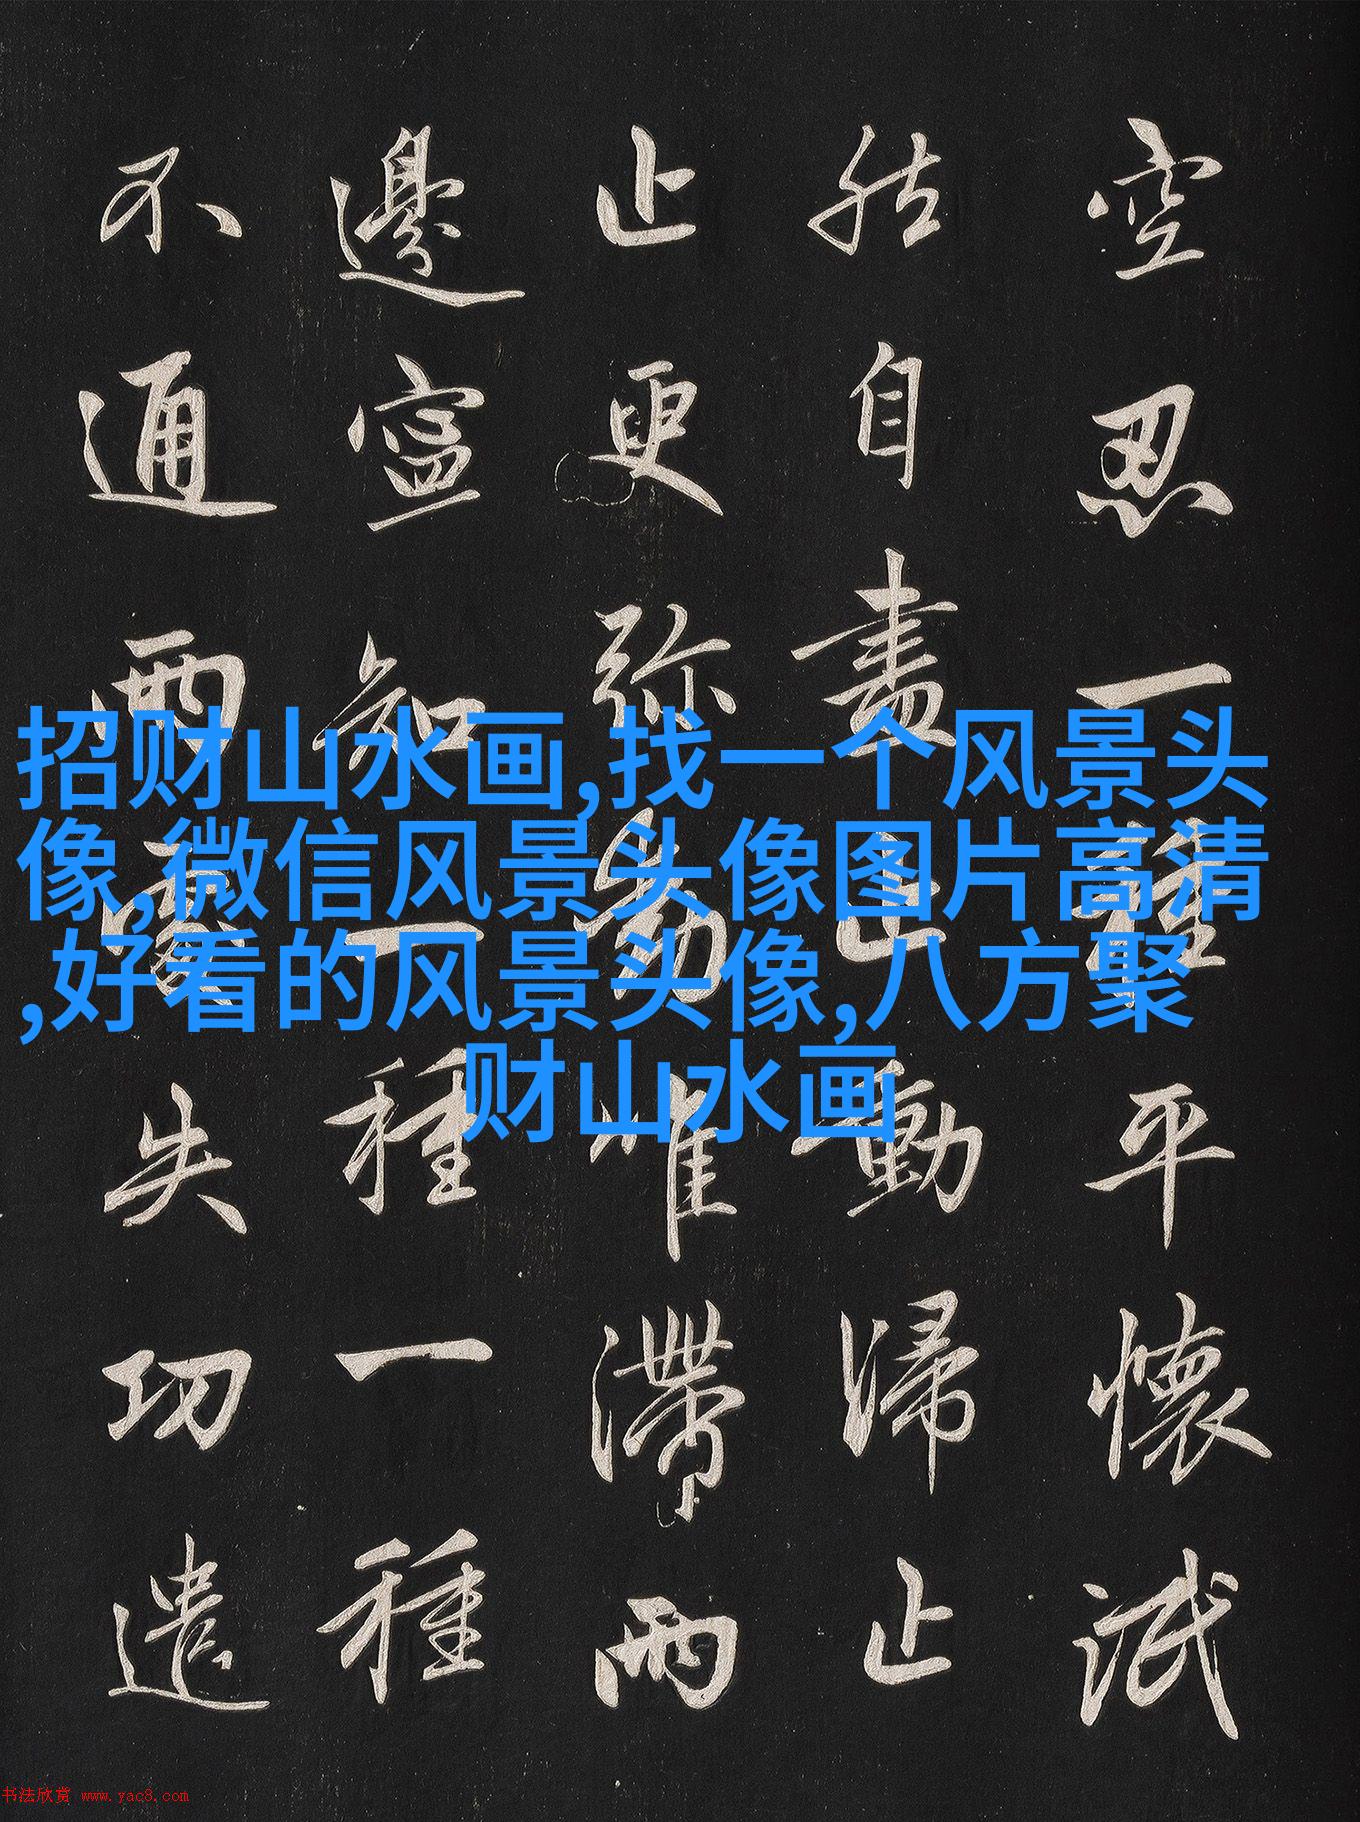 空忍一種平懷泯
然自盡止動歸止
止更彌動唯滯兩
邊寧知一種一種
不通兩處失功遣
招财山水画,找一个风景头
像,微信风景头像图片高清
,好看的风景头像,八方聚
财山水画
书法欣赏 www.yac8.com